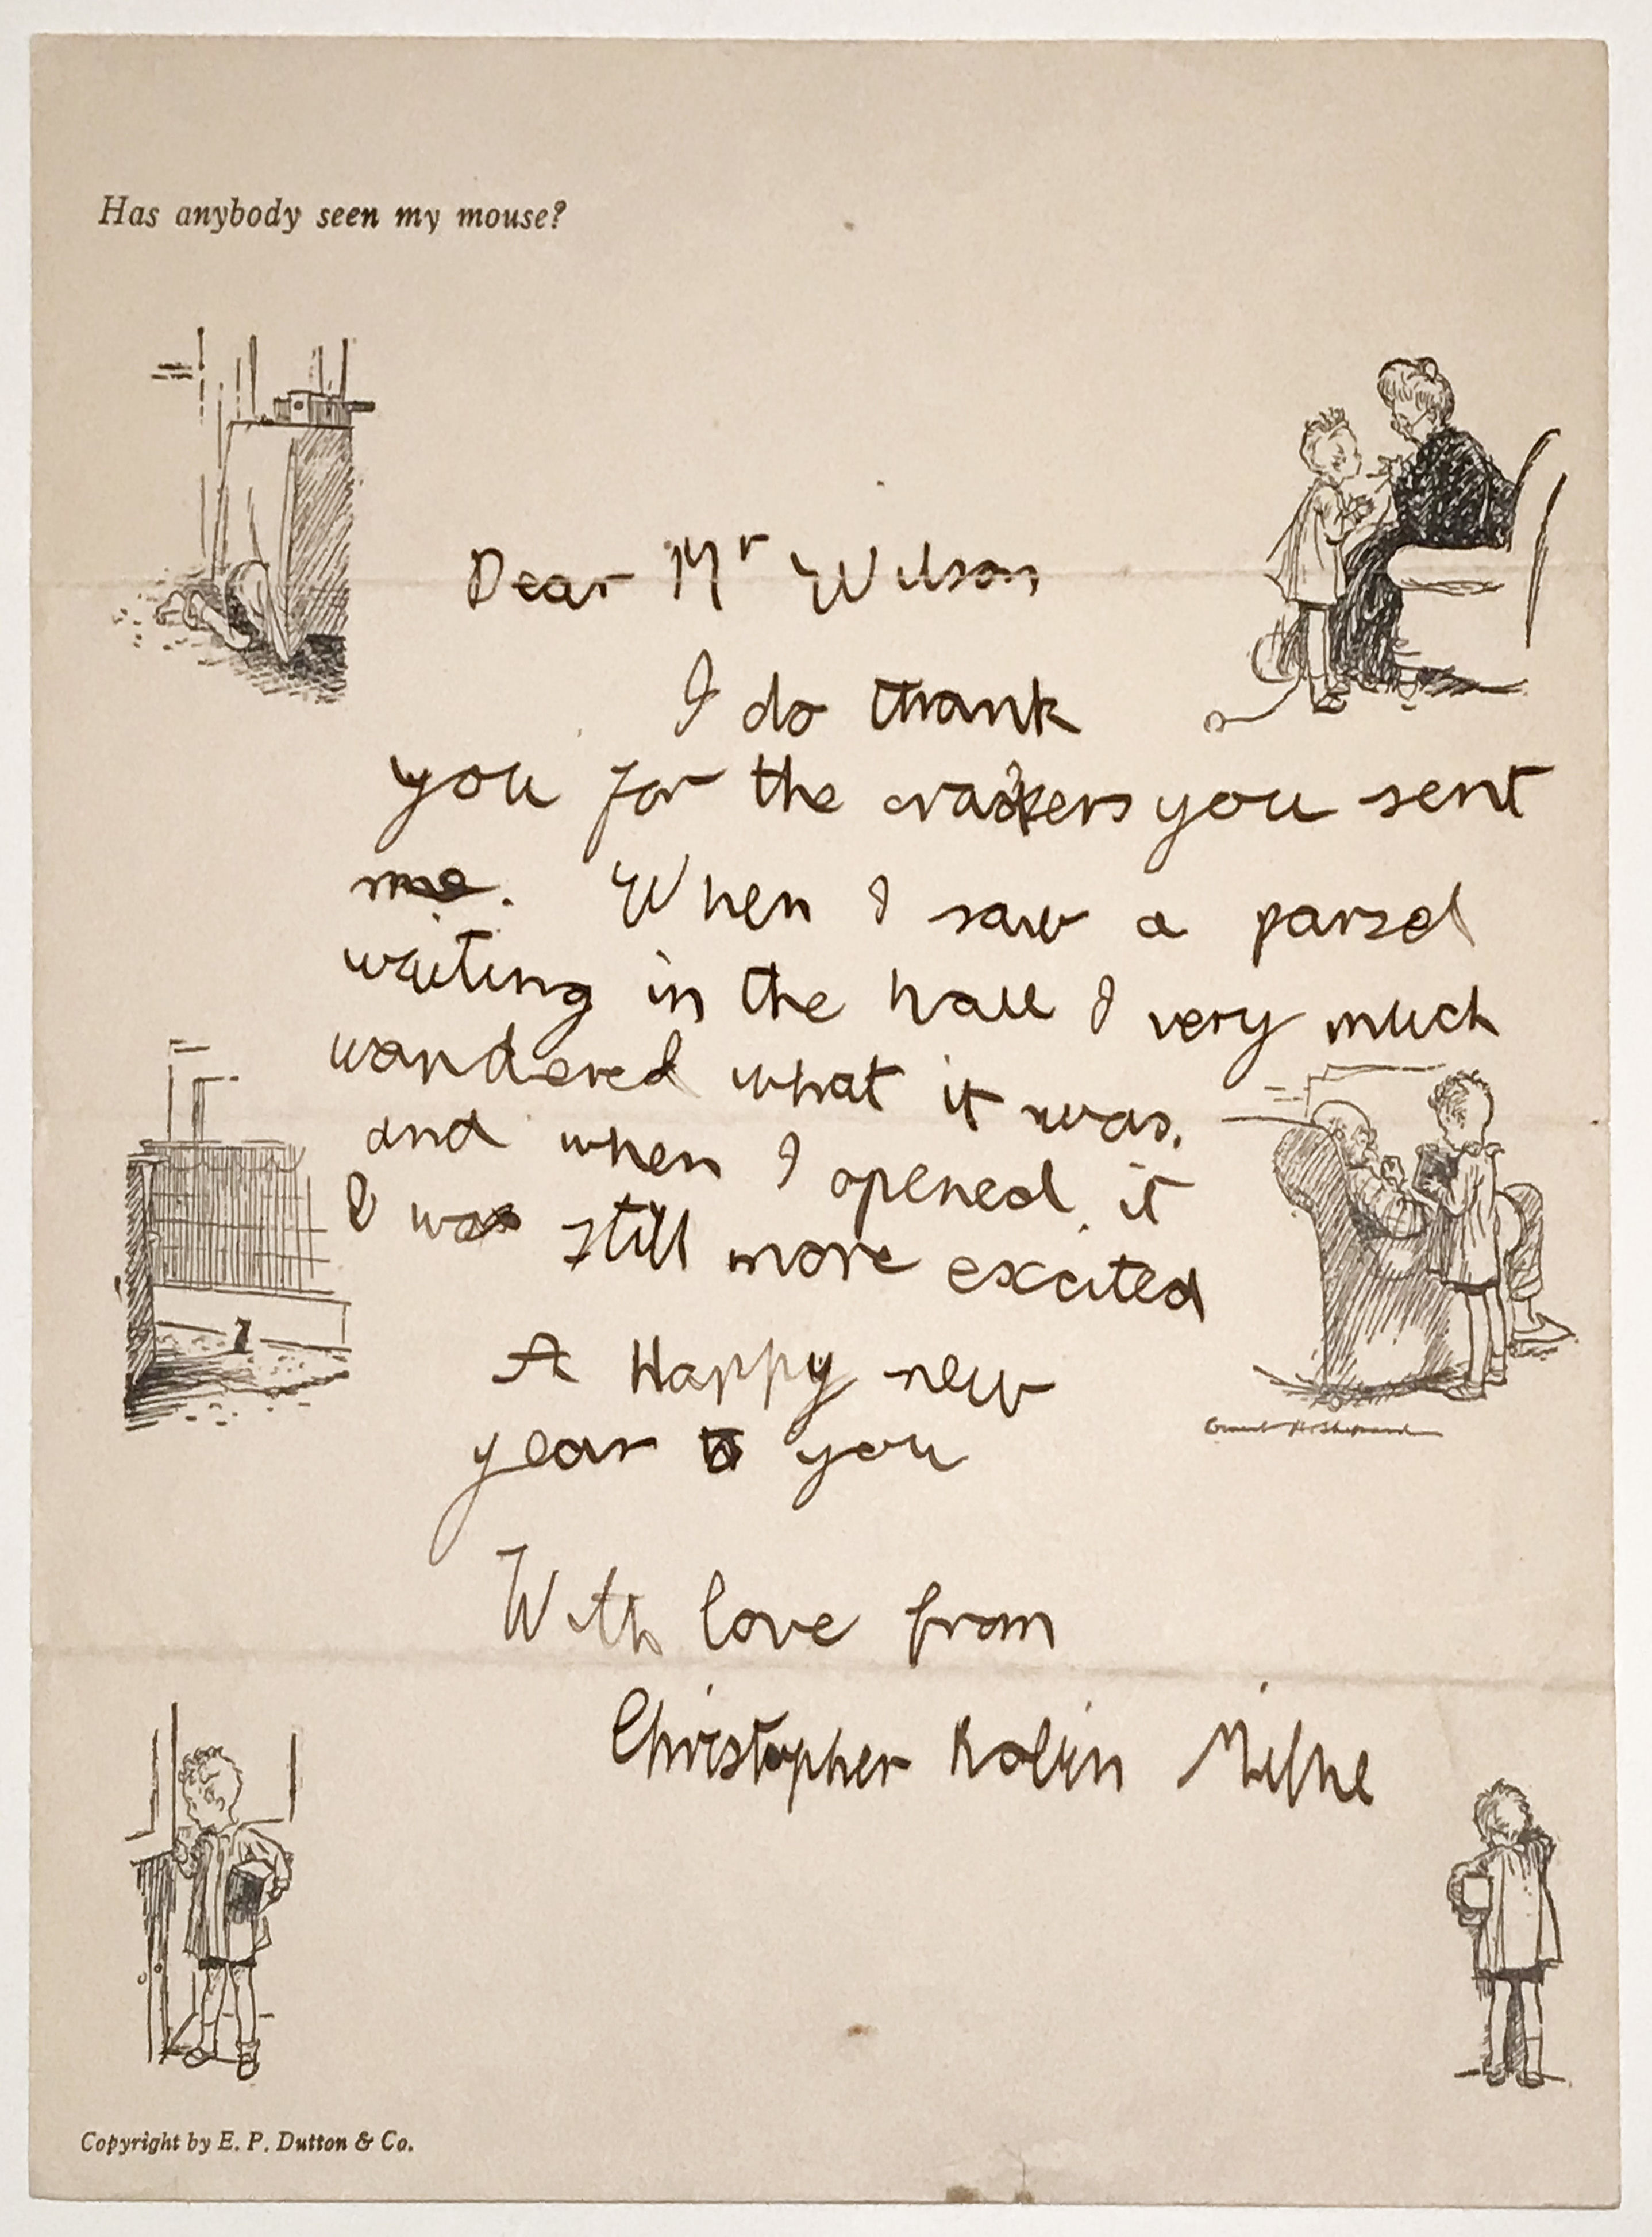 Has anybody seen my mouse?
Dear Mr Wilson
I do thank
you for the crackers you sent
me. When I saw a parsel
waiting in the hall I very much
wandered what it was.
and when I opened it
I was still more excited
A Happy new
year to you
With love from
Christopher Robin Milne
Ernest H. Shepard
Copyright by E. P. Dutton & Co.